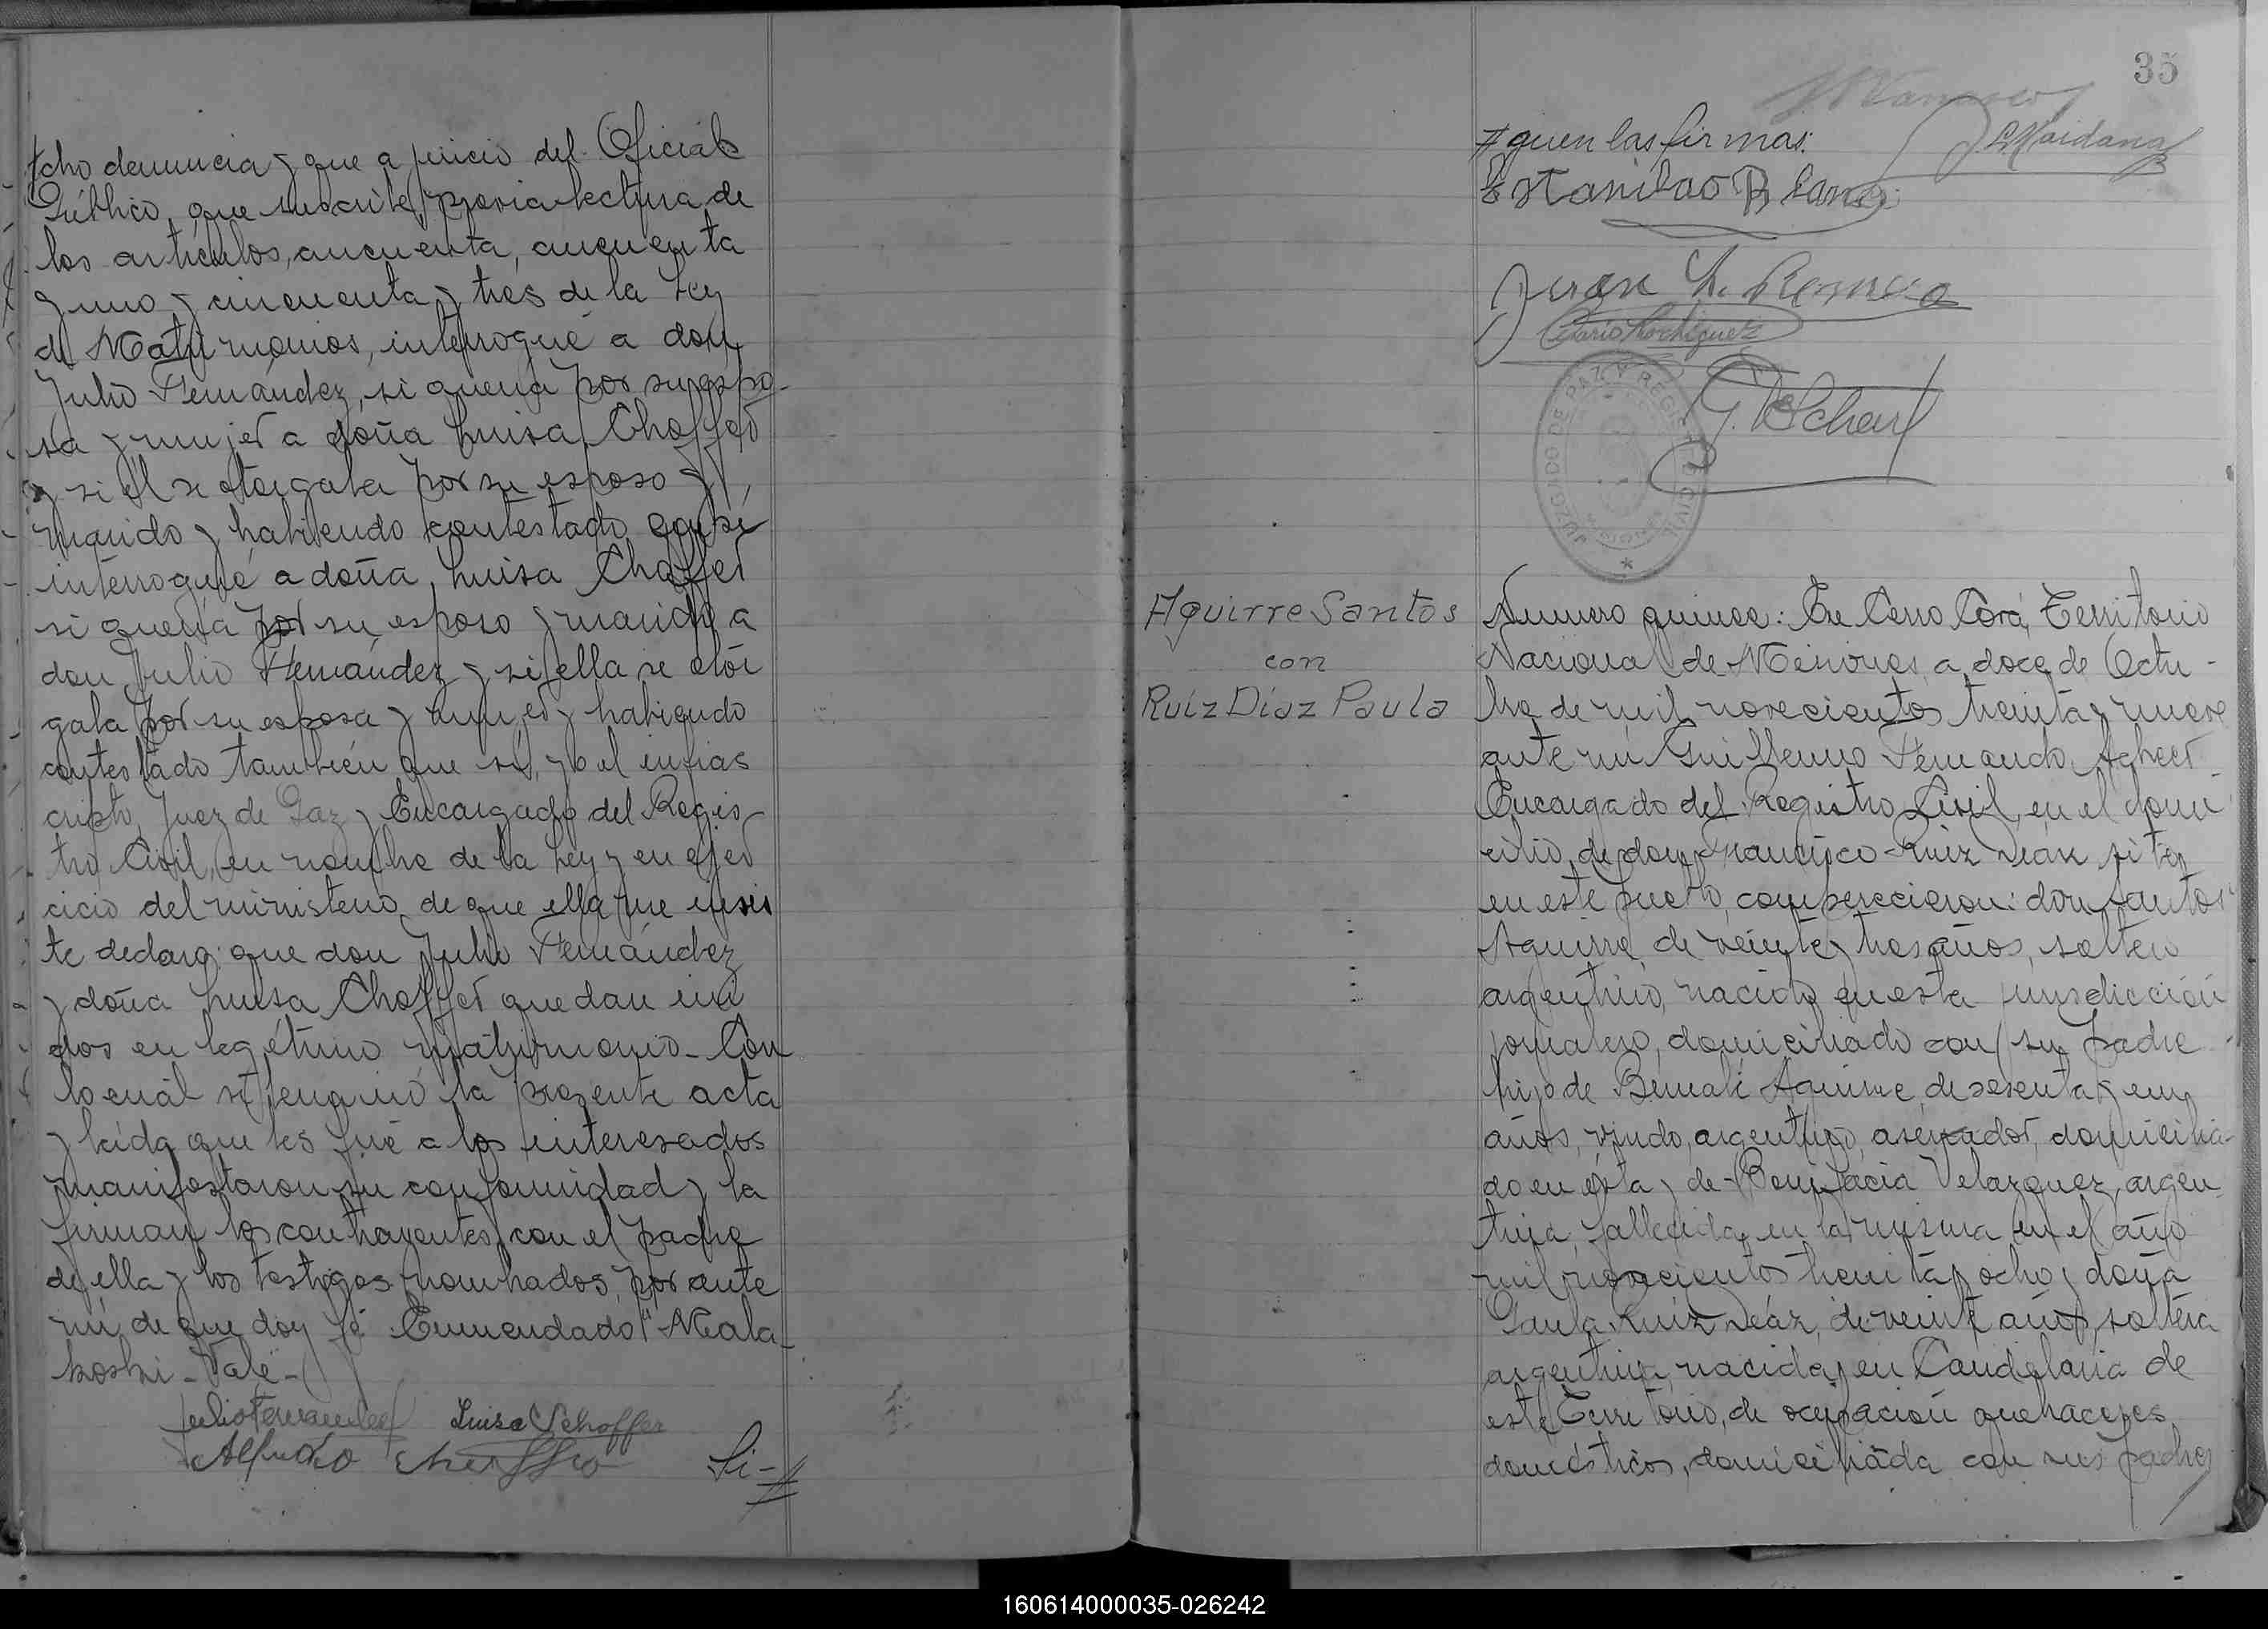 cho denuncia y que a juicio del Oficial
Público, que suscribe, previa lectura de
los artículos, cincuenta, cincuenta
y uno y cincuenta y tres de la Ley
de Matrimonios, interrogué a don
Julio Fernández, si quería por su espo-
sa y mujer a doña Luisa Choffer
y si él se otorgaba por su esposo y
marido y habiendo contestado que sí
interrogué a doña Luisa Choffer
si quería por su esposo y marido a
don Julio Fernández y si ella se otor
gaba por su esposa y mujer y habiendo
contestado también que sí, yo el infras
cripto, Juez de Paz y Encargado del Regis-
tro Civil, en nombre de la Ley y en ejer
cicio del ministerio de que ella me invis
te declaro: que don Julio Fernández
y doña Luisa Choffer quedan uni
dos en legítimo matrimonio - Con
lo cuál se terminó la presente acta
y leída que les fué a los interesados
manifestaron su conformidad y la
firman los contrayentes con el padre
de ella y los testigos nombrados, por ante
mí de que doy fé Enmendado "Mala
koski - Vale -
Julio Fernandez Luisa Schoffer
Alfredo Si-//
35
// guen las firmas: Maidana
Estanislao R
Juan
Rodriguez
JUZGADO DE PAZ Y REGISTRO CIVIL
Aguirre Santos
con
Ruiz Díaz Paula
Número quince: En Cerro Corá, Territorio
Nacional de Misiones, a doce de Octu-
bre de mil novecientos treinta y nueve
ante mí Guillermo Fernando
Encargado del Registro Civil, en el domi
cilio de don Francisco Ruiz Diaz sito
en este pueblo, comparecieron: don Santos
Aguirre de veinte y tres años, soltero
argentino, nacido en esta jurisdicción
jornalero, domiciliado con su padre
hijo de Aguirre, de sesenta y un
años, viudo, argentino, aserrador, domicilia-
do en ésta y de Bonifacia Velazquez, argen
tina, fallecida en la misma en el año
mil novecientos treinta y ocho y doña
Paula Ruiz Diáz, de veinte años, soltera
argentina, nacida en Candelaria de
este Territorio, de ocupación quehaceres
domésticos, domiciliada con sus padres
160614000035-026242